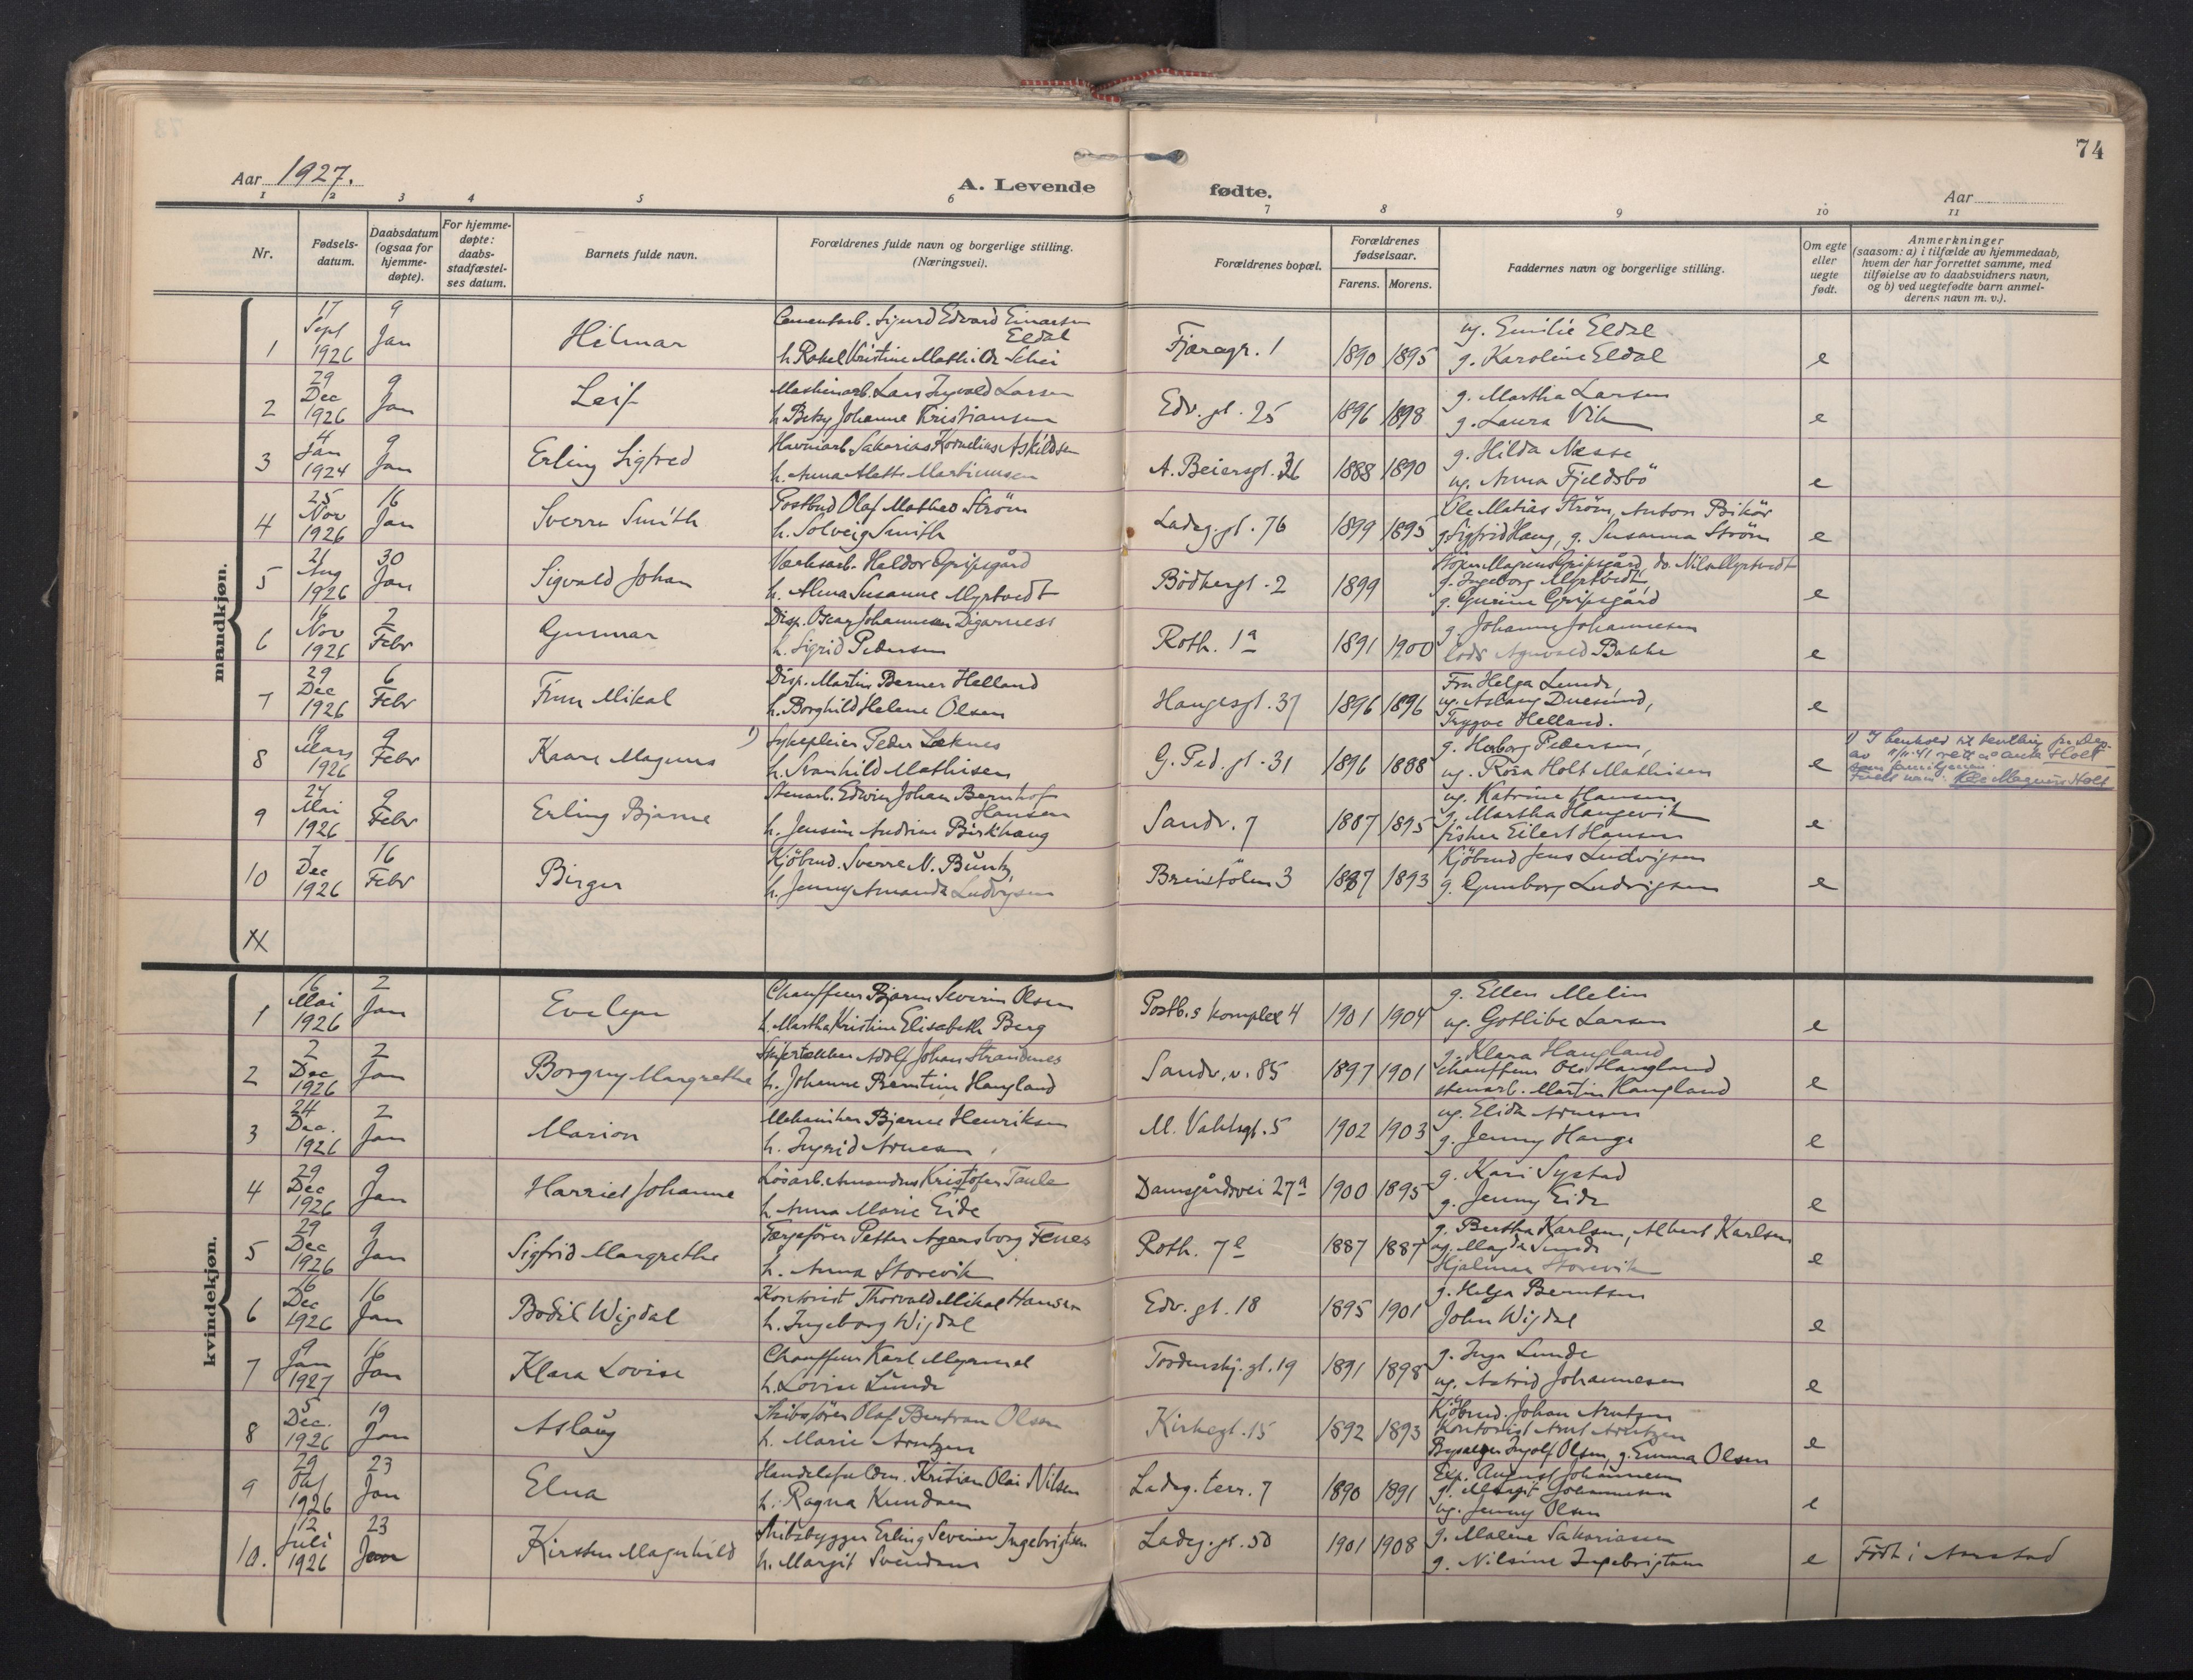 74
Aar 1927.
A. Levende fødte.
Aar
1 2 3 4 5 6 7 8 9 10 11
Nr.
Fødsels-
datum.
Daabsdatum
(ogsaa for
hjemme-
døpte).
For hjemme-
døpte:
daabs-
stadfæstel-
ses datum.
Barnets fulde navn.
Forældrenes fulde navn og borgerlige stilling.
(Næringsvei).
Forældrenes bopæl.
Forældrenes
fødselsaar.
Farens. Morens.
Faddernes navn og borgerlige stilling.
Om egte
eller
uegte
født.
Anmerkninger
(saasom: a) i tilfælde av hjemmedaab,
hvem der har forrettet samme, med
tilføielse av to daabsvidners navn,
og b) ved uegtefødte barn anmel-
derens navn m. v.).
mandkjøn.
1 17 Sept 1926 9 Jan Hilmar
Cementarb. Sigurd Edvard Einarsen
Eldal
h. Rakel Kristine Mathilde Schei
Fjæregr. 1 1890 1895
ug. Emilie Eldal
g. Karoline Eldal
e
2 29 Dec 1926 9 Jan Leif
Maskinarb. Lars Ingvald Larsen
h. Betsy Johanne Kristiansen
Edv. gt. 25 1896 1898
g. Martha Larsen
g. Laura Vik
e
3 4 Jan 1924 9 Jan Erling Sigfred
Havnearb. Sakarias Kornelius Askildsen
h. Anna Alette Martinusen
A. Beiersgt. 26 1888 1890
g. Hilda Næsse
ug. Anna Fjeldsbö
e
4 25 Nov 1926 16 Jan Sverre Smith
Postbud Olaf Matheo Ström
h. Solveig Smith
Ladeg.gt. 76 1899 1895
Ole Matias Ström, Anton
g. Sigfrid Haug, g. Susanna Ström
e
5 21 Aug 1926 30 Jan Sigvald Johan
Verksarb. Haldor Gripsgård
h. Alma Susanne Myrtvedt
Bödkergt. 2 1899
Magnus Gripsgård, do. Nils Myrtvedt
g. Ingeborg Myrtvedt
g. Gurine Gripsgård
e
6 16 Nov 1926 2 Febr Gunnar
Disp. Oscar Johannesen Digarness
h. Sigrid Pedersen
Roth. 1a 1891 1900
g. Johanne Johannesen
Bakke
e
7 29 Dec 1926 6 Febr Finn Mikal
Disp. Martin Berner Helland
h. Borghild Helene Olsen
Haugesgt. 37 1896 1896
Fru Helga Lunde,
ug. Aslaug Duesund,
Trygve Helland.
e
8 19 Mars 1926 9 Febr Kaare Magnus
1) Sykepleier Peder Løknes
h. Svanhild Mathisen
G. Ped. gt. 31 1896 1888
g. Herborg Pedersen,
ug. Rosa Holt Mathisen
e
1) I henhold til
Holt
som familjenavn.
Magnus Holt
9 27 Mai 1926 9 Febr Erling Bjarne
Stenarb. Edwin Johan Bernhof
Hansen
h. Jensine Andrine Birkhaug
Sandv. 7 1887 1895
ug. Katrine Hansen
g. Martha Haugevik
fisker Eilert Hansen
e
10 7 Dec 1926 16 Febr Birger
Kjöbmd. Sverre N. Buntz,
h. Jenny Amanda Ludvigsen
Breistölen 3 1887 1893
Kjöbmd Jens Ludvigsen
g. Gunborg Ludvigsen
e
kvindekjøn.
1 16 Mai 1926 2 Jan Evelyn
Chauffeur Bjarne Severin Olsen
h. Martha Kristine Elisabeth Berg
Postb.s komplex 4 1901 1904
g. Ellen Melin
ug. Gotlibe Larsen
e
2 2 Dec 1926 2 Jan Borgny Margrethe
Skifertækker Adolf Johan Strandnes
h. Johanne Berntine Haugland
Sandv.v. 85 1897 1901
g. Klara Haugland
chauffeur Ole Haugland
stenarb. Martin Haugland
e
3 24 Dec. 1926 2 Jan Marion
Mekaniker Bjarne Henriksen
h. Ingrid Arnesen
M. Vahlsgt. 5 1902 1903
ug. Elida Arnesen
g. Jenny Hauge
e
4 29 Dec 1926 9 Jan Harriet Johanne
Lösarb. Amandus Kristofer Taule
h. Anna Marie Eide
Damsgårdsvei 27a 1900 1895
g. Kari Systad
g. Jenny Eide
e
5 29 Dec 1926 9 Jan Sigfrid Margrethe
Færgefører Petter Agersborg Fenes
h. Anna Storevik
Roth. 7e 1887 1887
g. Bertha Karlsen, Albert Karlsen
ug. Magda Sunde
Hjalmar Storevik
e
6 16 Dec 1926 16 Jan Bodil Wigdal
Kontorist Thorvald Mikal Hansen
h. Ingeborg Wigdal
Edv. gt. 18 1895 1901
g. Helga Berntsen
John Wigdal
e
7 9 Jan 1927 16 Jan Klara Lovise
Chauffeur Karl Myrmel
h. Lovise Lunde
Tordenskj. gt. 19 1891 1898
g. Inga Lunde
ug. Astrid Johannesen
e
8 5 Dec. 1926 19 Jan Aslaug
Skibsfører Olaf Bertran Olsen
h. Marie Arntzen
Kirkegt. 15 1892 1893
Kjöbmd. Johan Arntzen
Kontorist Arnt Arntzen
Ingolf Olsen, g. Emma Olsen
e
9 29 Okt 1926 23 Jan Elna
Handelsfuldm. Kristian Olai Nilsen
h. Ragna Knudsen
Ladeg. terr. 7 1890 1891
Exp. August Johannesen
g. Margit Johannesen
ug. Jenny Olsen
e
10. 12 Juli 1926 23 Jan Kirsten Magnhild
Skibsbygger Erling Severin Ingebrigtsen
h. Margit Svendsen
Ladeg. gt. 50 1901 1908
g. Malene Sakariasen
g. Nilsine Ingebrigtsen
e
Født i